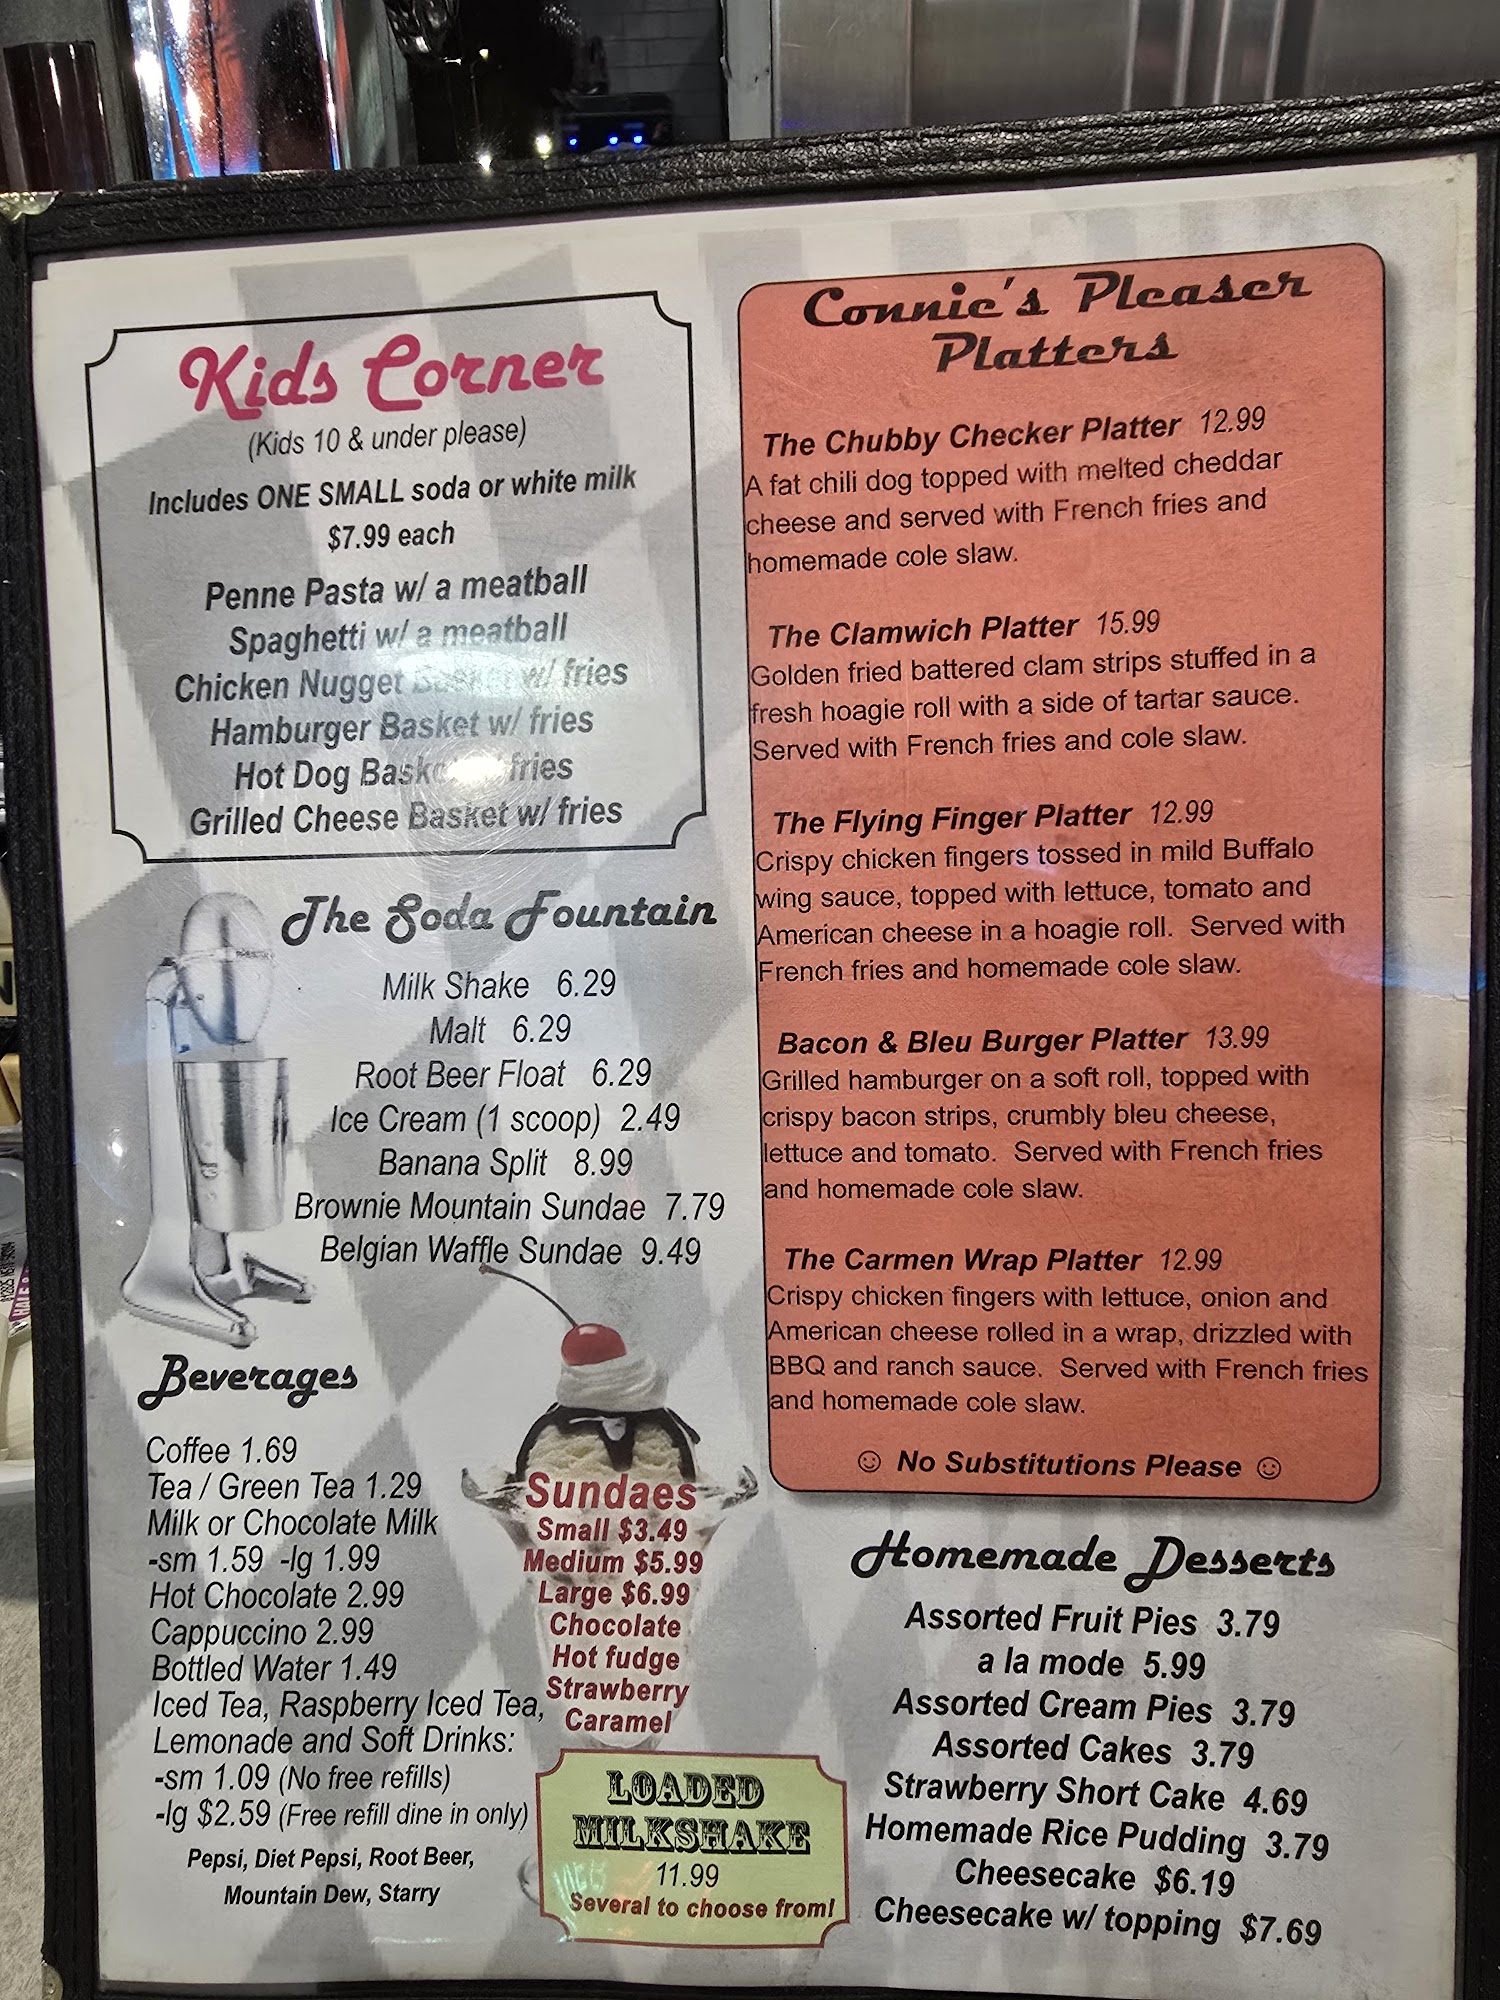 Kids Corner
(Kids 10 & under please)
Includes ONE SMALL soda or white milk
$7.99 each
Penne Pasta w/ a meatball
Spaghetti w/ a meatball
Chicken Nugget Basket w/ fries
Hamburger Basket w/ fries
Hot Dog Basket fries
Grilled Cheese Basket w/ fries
The Soda Fountain
Milk Shake 6.29
Malt 6.29
Root Beer Float 6.29
Ice Cream (1 scoop) 2.49
Banana Split 8.99
Brownie Mountain Sundae 7.79
Belgian Waffle Sundae 9.49
Beverages
Coffee 1.69
Tea / Green Tea 1.29
Milk or Chocolate Milk
-sm 1.59 -lg 1.99
Hot Chocolate 2.99
Cappuccino 2.99
Bottled Water 1.49
Iced Tea, Raspberry Iced Tea,
Lemonade and Soft Drinks:
-sm 1.09 (No free refills)
-lg $2.59 (Free refill dine in only)
Pepsi, Diet Pepsi, Root Beer,
Mountain Dew, Starry
Sundaes
Small $3.49
Medium $5.99
Large $6.99
Chocolate
Hot fudge
Strawberry
Caramel
LOADED
MILKSHAKE
11.99
Several to choose from!
Connie's Pleaser
Platters
The Chubby Checker Platter 12.99
A fat chili dog topped with melted cheddar
cheese and served with French fries and
homemade cole slaw.
The Clamwich Platter 15.99
Golden fried battered clam strips stuffed in a
fresh hoagie roll with a side of tartar sauce.
Served with French fries and cole slaw.
The Flying Finger Platter 12.99
Crispy chicken fingers tossed in mild Buffalo
wing sauce, topped with lettuce, tomato and
American cheese in a hoagie roll. Served with
French fries and homemade cole slaw.
Bacon & Bleu Burger Platter 13.99
Grilled hamburger on a soft roll, topped with
crispy bacon strips, crumbly bleu cheese,
lettuce and tomato. Served with French fries
and homemade cole slaw.
The Carmen Wrap Platter 12.99
Crispy chicken fingers with lettuce, onion and
American cheese rolled in a wrap, drizzled with
BBQ and ranch sauce. Served with French fries
and homemade cole slaw.
☺ No Substitutions Please ☺
Homemade Desserts
Assorted Fruit Pies 3.79
a la mode 5.99
Assorted Cream Pies 3.79
Assorted Cakes 3.79
Strawberry Short Cake 4.69
Homemade Rice Pudding 3.79
Cheesecake $6.19
Cheesecake w/ topping $7.69